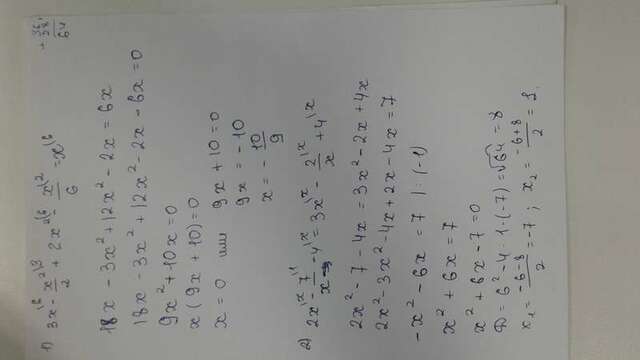 1) 3x\⁶ - x²\³/2 + 2x²\⁶ - x\²/6 = x\⁶
18x - 3x² + 12x² - 2x = 6x
18x - 3x² + 12x² - 2x - 6x = 0
9x² + 10x = 0
x(9x + 10) = 0
x = 0 или 9x + 10 = 0
9x = -10
x = -10/9
2) 2x\ˣ - 7\¹/x - 4\ˣ = 3x\ˣ - 2\ˣ/x + 4\ˣ
2x² - 7 - 4x = 3x² - 2x + 4x
2x² - 3x² - 4x + 2x - 4x = 7
-x² - 6x = 7 | : (-1)
x² + 6x = 7
x² + 6x - 7 = 0
D = 6² - 4 · 1 · (-7) = √64 = 8
x₁ = (-6-8)/2 = -7; x₂ = (-6+8)/2 = 1.
+ 36
28
64